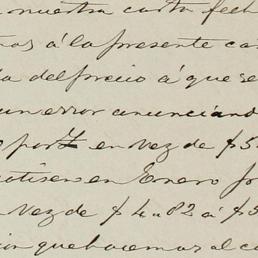 nuestra carta fech
á la presente ca
del precio á que se
un error anunciand
por en vez de $5
en Enero
vez de $4.82 á $5
que hacemos al co